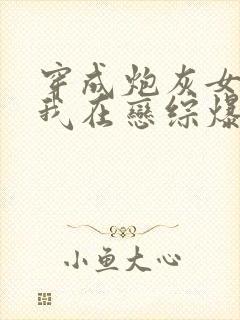 穿成炮灰女
我在恋综爆
小鱼大心